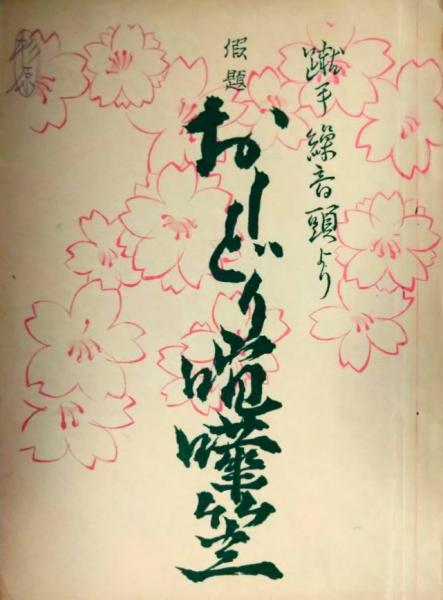 蹴手繰音頭より
假題
おしどり喧嘩笠